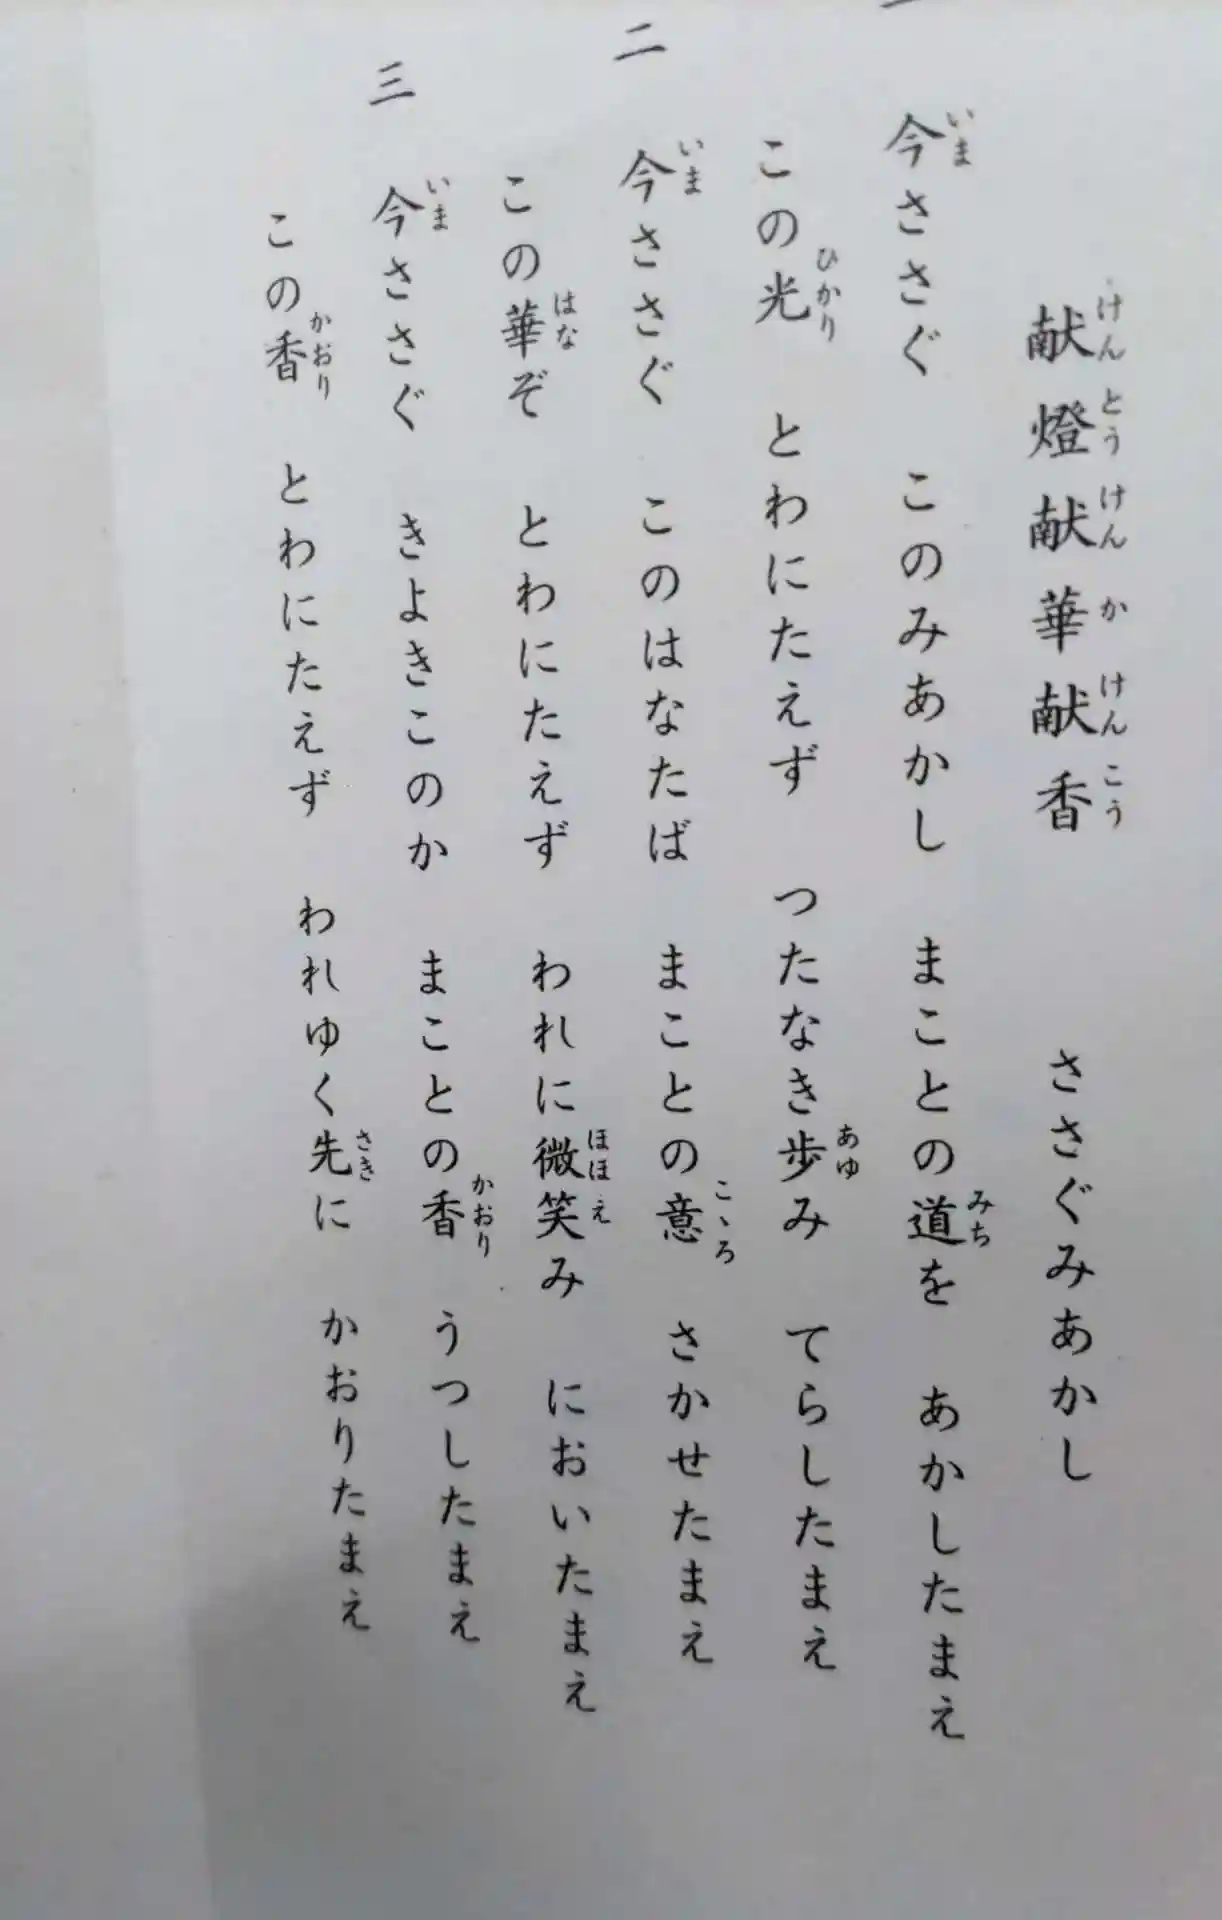 献燈献華献香 ささぐみあかし
一
今ささぐ このみあかし まことの道を あかしたまえ
この光 とわにたえず つたなき歩み てらしたまえ
二
今ささぐ このはなたば まことの意 さかせたまえ
この華ぞ とわにたえず われに微笑み においたまえ
三
今ささぐ きよきこのか まことの香 うつしたまえ
この香 とわにたえず われゆく先に かおりたまえ